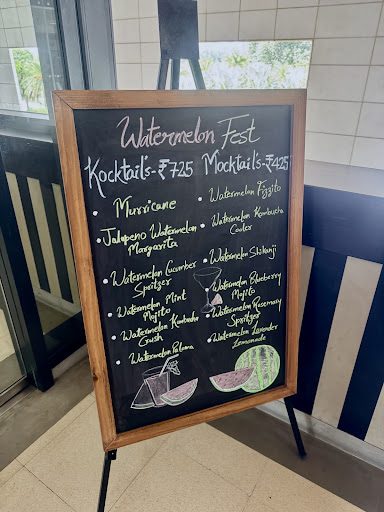 Watermelon Fest
Kocktail's-₹725 Mocktail's-₹425
Murricane
Jalapeno Watermelon
Margarita
Watermelon Cucumber
Spritzer
Watermelon Mint
Mojito
Watermelon Kombucha
Crush
Watermelon Paloma
Watermelon Fizzito
Watermelon Kombucha
Cooler
Watermelon Shikanji
Watermelon Blueberry
Mojito
Watermelon Rosemary
Spritzer
Watermelon Lavender
Lemonade